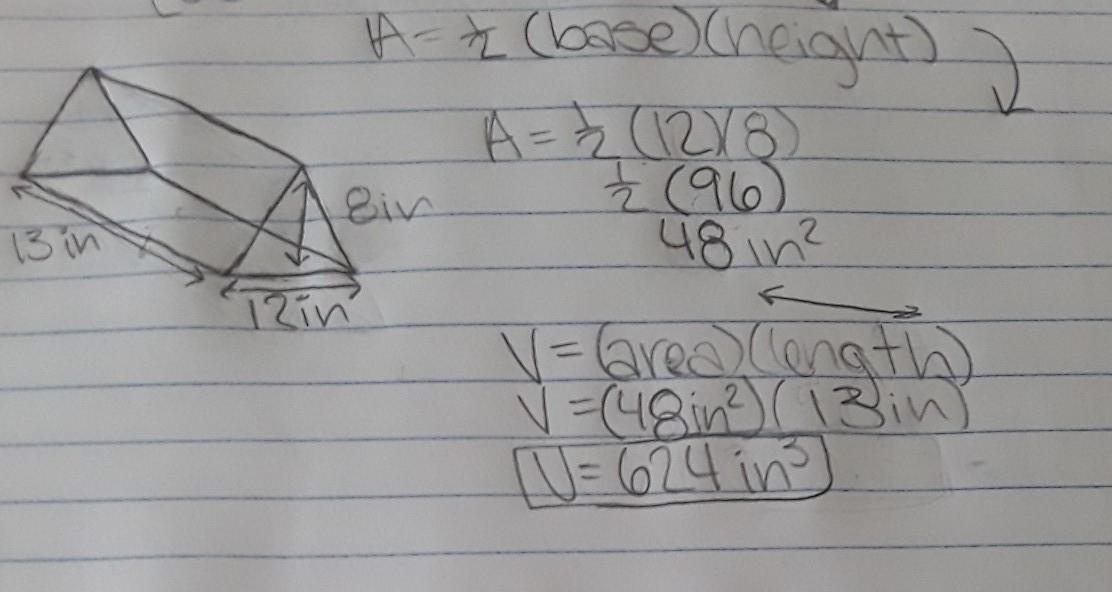 A = ½ (base)(height)
A = ½ (12)(8)
½ (96)
48 in²
8in
13 in
12in
V = (area)(length)
V = (48in²)(13in)
V = 624 in³